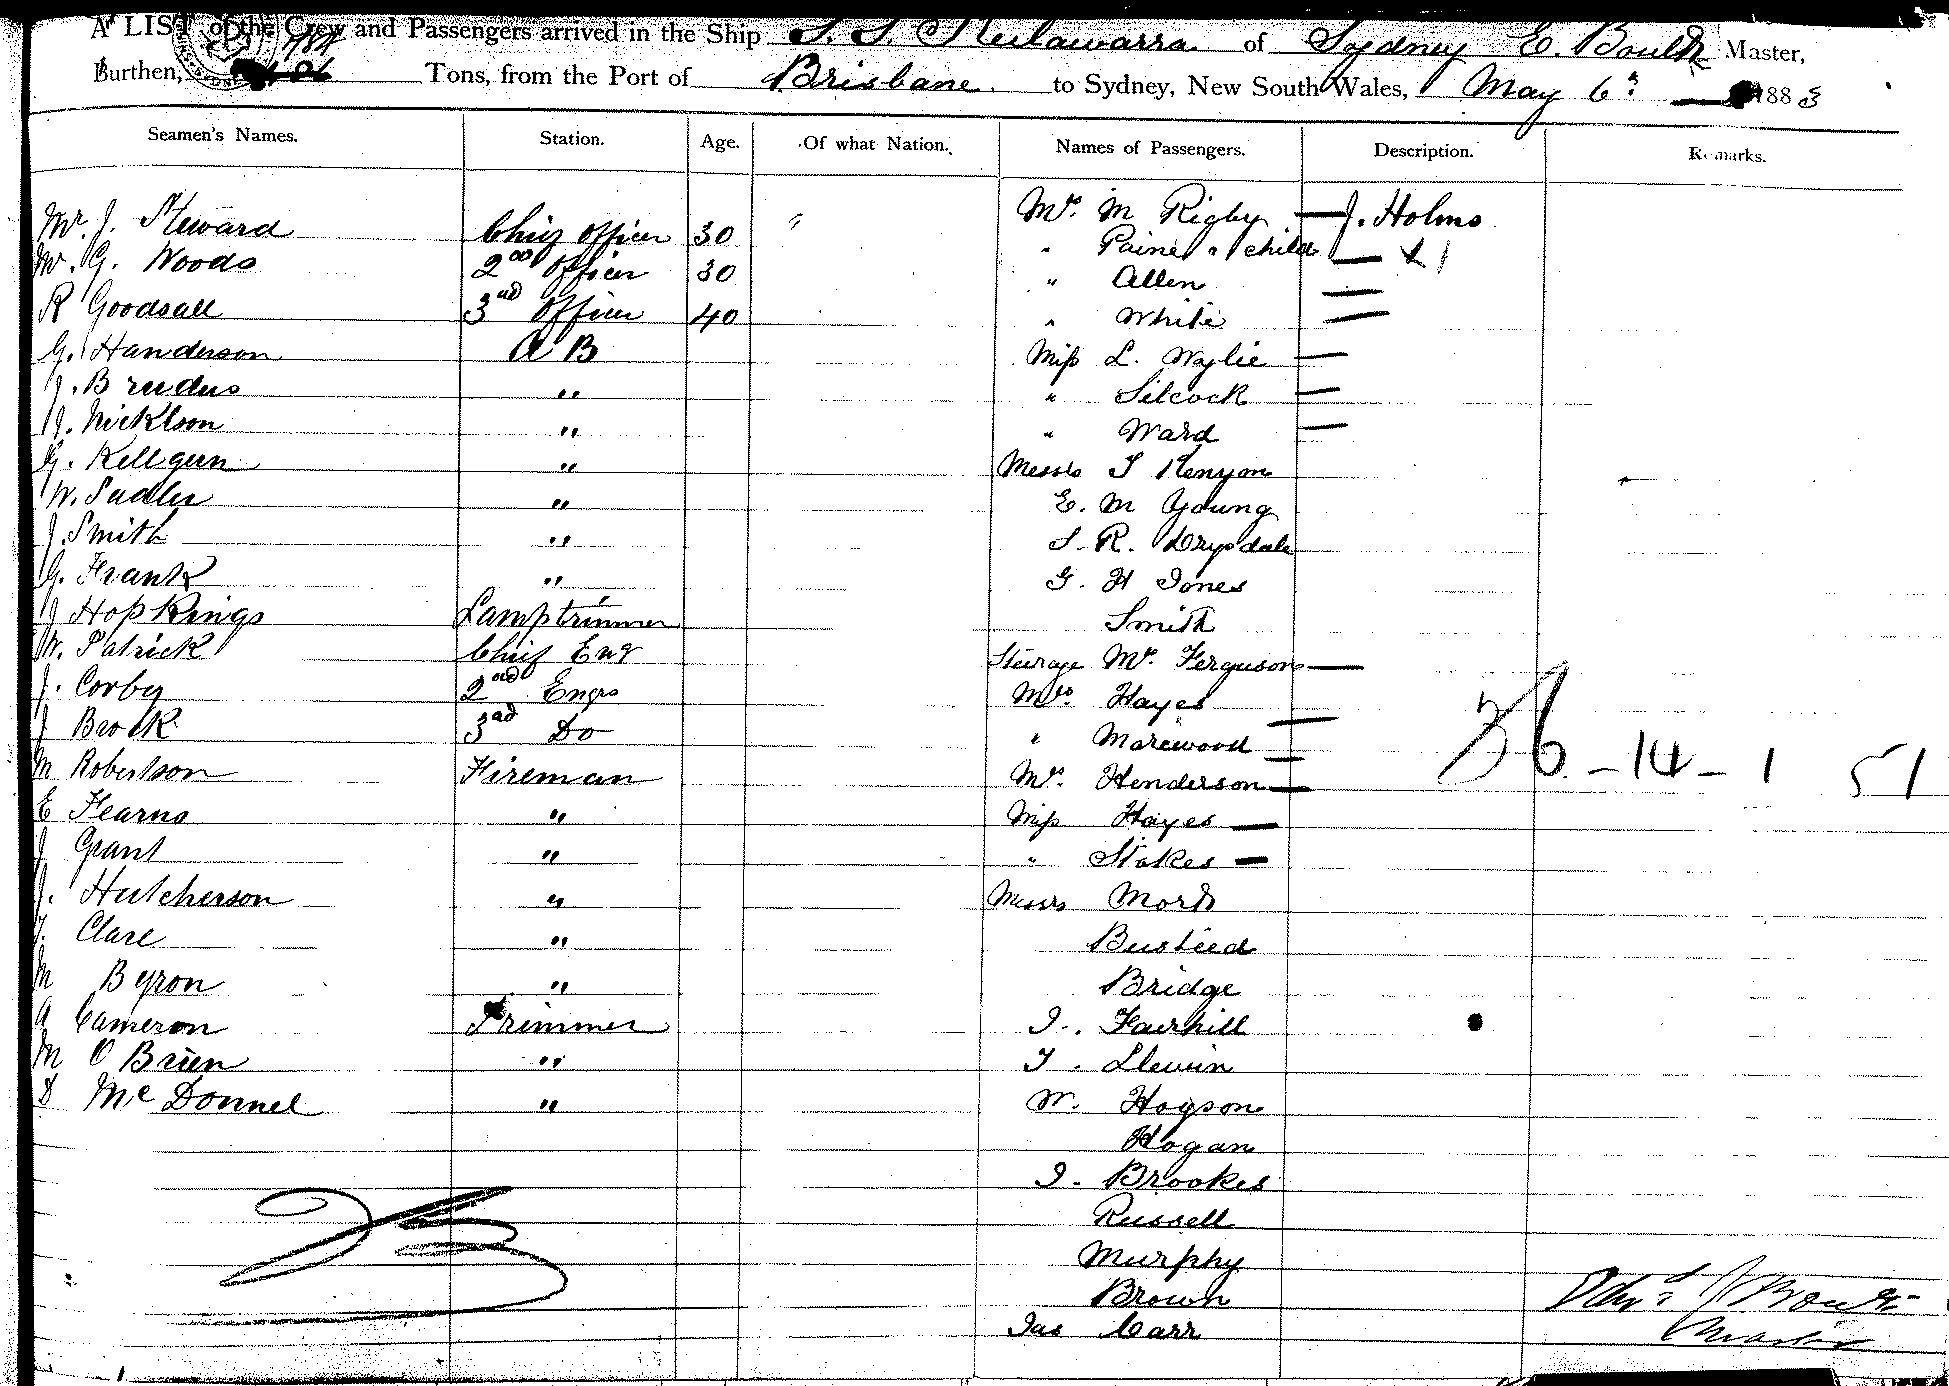 A LIST of the Crew and Passengers arrived in the Ship S. S. Keilawarra of Sydney E. Boulk Master,
Burthen, Tons, from the Port of Brisbane. to Sydney, New South Wales, May 6th 1883
Seamen's Names. Station. Age. Of what Nation. Names of Passengers. Description. Remarks.
Mr. J. Steward Chief Officer 30 " Mrs. M Rigby — J. Holms
Mr. G. Woods 2nd Officer 30 " Paine " child — X 1
R Goodsall 3rd Officer 40 " Allen —
G. Handerson A B " White —
J. Brudus " Miss L. Wylie —
J. Nicklson " " Silcock —
G. Kellgun " " Ward —
W. Sadler " Messrs T Kenyon
J. Smith " E. M Young
G. Frank " S. R. Drysdale
J Hopkings Lamptrimmer G. H Jones
W. Patrick Chief Eng Smith
J. Corby 2nd Engrs Steerage Mr. Ferguson —
J Brock 3rd Do Mrs. Hayes
M Robertson Fireman " Marewood —
E Fearns " Mrs. Henderson —
J Grant " Miss Hayes —
J. Hutcherson " " Stokes —
T. Clare " Messrs Mork
M Byron " Busteed
A Cameron Trimmer Bridge
M O Brien " J. Fairhill
D Mc Donnel " T. Llewin
W. Hogson
Hogan
J. Brookes
Russell
Murphy
Brown
Jas Carr
36 - 14 - 1 51
Master